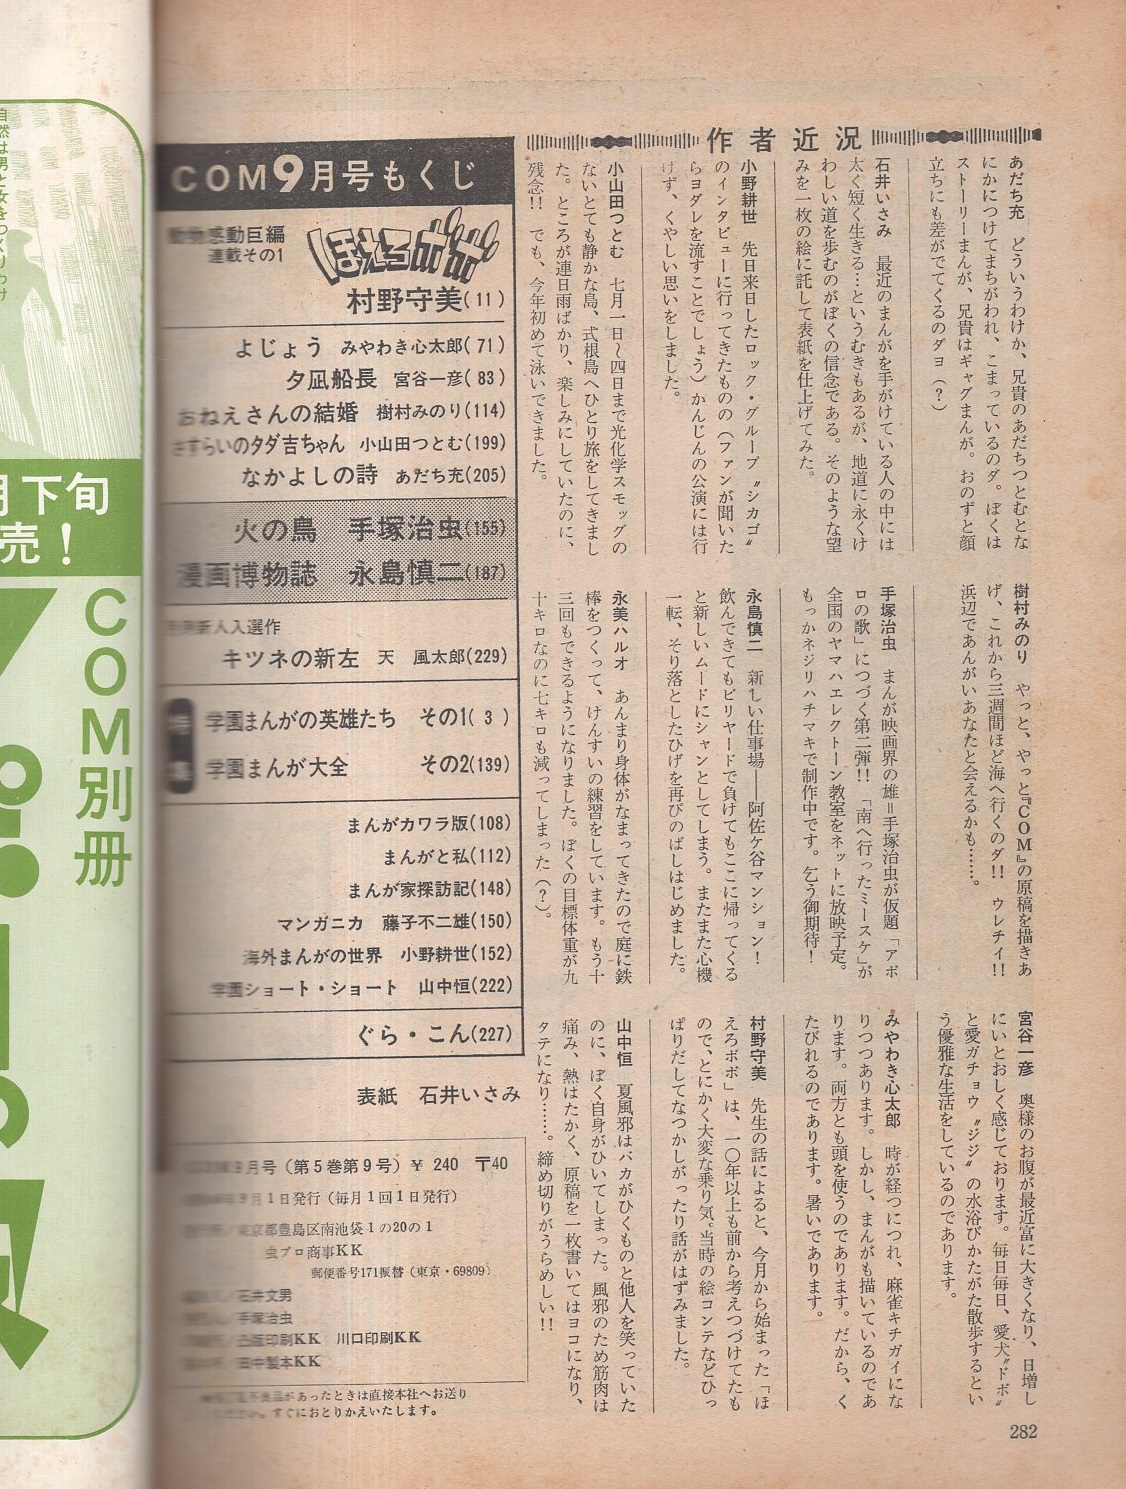 作者近況
あだち充　どういうわけか、兄貴のあだちつとむとな
にかにつけてまちがわれ、こまっているのダ。ぼくは
ストーリーまんが、兄貴はギャグまんが。おのずと顔
立ちにも差がでてくるのダヨ（？）
石井いさみ　最近のまんがを手がけている人の中には
太く短く生きる…というむきもあるが、地道に永くけ
わしい道を歩むのがぼくの信念である。そのような望
みを一枚の絵に託して表紙を仕上げてみた。
小野耕世　先日来日したロック・グループ〝シカゴ〟
のインタビューに行ってきたものの（ファンが聞いた
らヨダレを流すことでしょう）かんじんの公演には行
けず、くやしい思いをしました。
小山田つとむ　七月一日〜四日まで光化学スモッグの
ないとても静かな島、式根島へひとり旅をしてきまし
た。ところが連日雨ばかり、楽しみにしていたのに、
残念!!　でも、今年初めて泳いできました。
樹村みのり　やっと、やっと『COM』の原稿を描きあ
げ、これから三週間ほど海へ行くのダ!!　ウレチイ!!
浜辺であんがいあなたと会えるかも……。
手塚治虫　まんが映画界の雄＝手塚治虫が仮題「アポ
ロの歌」につづく第二弾!!　「南へ行ったミースケ」が
全国のヤマハエレクトーン教室をネットに放映予定。
もっかネジリハチマキで制作中です。乞う御期待！
永島慎二　新しい仕事場――阿佐ケ谷マンション！
飲んできてもビリヤードで負けてもここに帰ってくる
と新しいムードにシャンとしてしまう。またまた心機
一転、そり落としたひげを再びのばしはじめました。
永美ハルオ　あんまり身体がなまってきたので庭に鉄
棒をつくって、けんすいの練習をしています。もう十
三回もできるようになりました。ぼくの目標体重が九
十キロなのに七キロも減ってしまった（？）。
宮谷一彦　奥様のお腹が最近富に大きくなり、日増し
にいとおしく感じております。毎日毎日、愛犬〝ドボ〟
と愛ガチョウ〝ジジ〟の水浴びかたがた散歩するとい
う優雅な生活をしているのであります。
みやわき心太郎　時が経つにつれ、麻雀キチガイにな
りつつあります。しかし、まんがも描いているのであ
ります。両方とも頭を使うのであります。だから、く
たびれるのであります。暑いであります。
村野守美　先生の話によると、今月から始まった「ほ
えろボボ」は、一〇年以上も前から考えつづけてたも
ので、とにかく大変な乗り気。当時の絵コンテなどひっ
ぱりだしてなつかしがったり話がはずみました。
山中恒　夏風邪はバカがひくものと他人を笑っていた
のに、ぼく自身がひいてしまった。風邪のため筋肉は
痛み、熱はたかく、原稿を一枚書いてはヨコになり、
タテになり……。締め切りがうらめしい!!
COM9月号もくじ
動物感動巨編
連載その1
ほえろボボ
村野守美(11)
よじょう　みやわき心太郎(71)
夕凪船長　宮谷一彦(83)
おねえさんの結婚　樹村みのり(114)
さすらいのタダ吉ちゃん　小山田つとむ(199)
なかよしの詩　あだち充(205)
火の鳥　手塚治虫(155)
漫画博物誌　永島慎二(187)
新人入選作
キツネの新左　天　風太郎(229)
特集
学園まんがの英雄たち　その1(3)
学園まんが大全　その2(139)
まんがカワラ版(108)
まんがと私(112)
まんが家探訪記(148)
マンガニカ　藤子不二雄(150)
海外まんがの世界　小野耕世(152)
学園ショート・ショート　山中恒(222)
ぐら・こん(227)
表紙　石井いさみ
COM9月号（第5巻第9号）¥240　〒40
年9月1日発行（毎月1回1日発行）
東京都豊島区南池袋1の20の1
虫プロ商事KK
郵便番号171振替（東京・69809）
石井文男
手塚治虫
凸版印刷KK　川口印刷KK
田中製本KK
不良品があったときは直接本社へお送り
ください。すぐにおとりかえいたします。
282
自然は男と女をつくりわけ
月下旬
売！
COM別冊